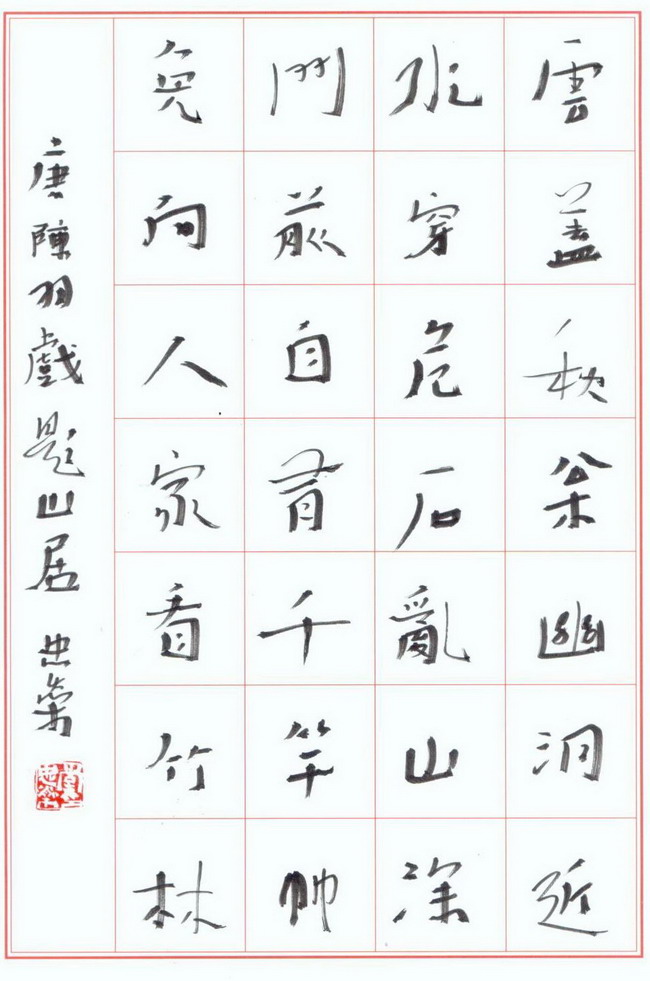 雲蓋秋枀幽洞近
水穿危石亂山深
門前自有千竿竹
免向人家看竹林
唐陳羽戲題山居 忠